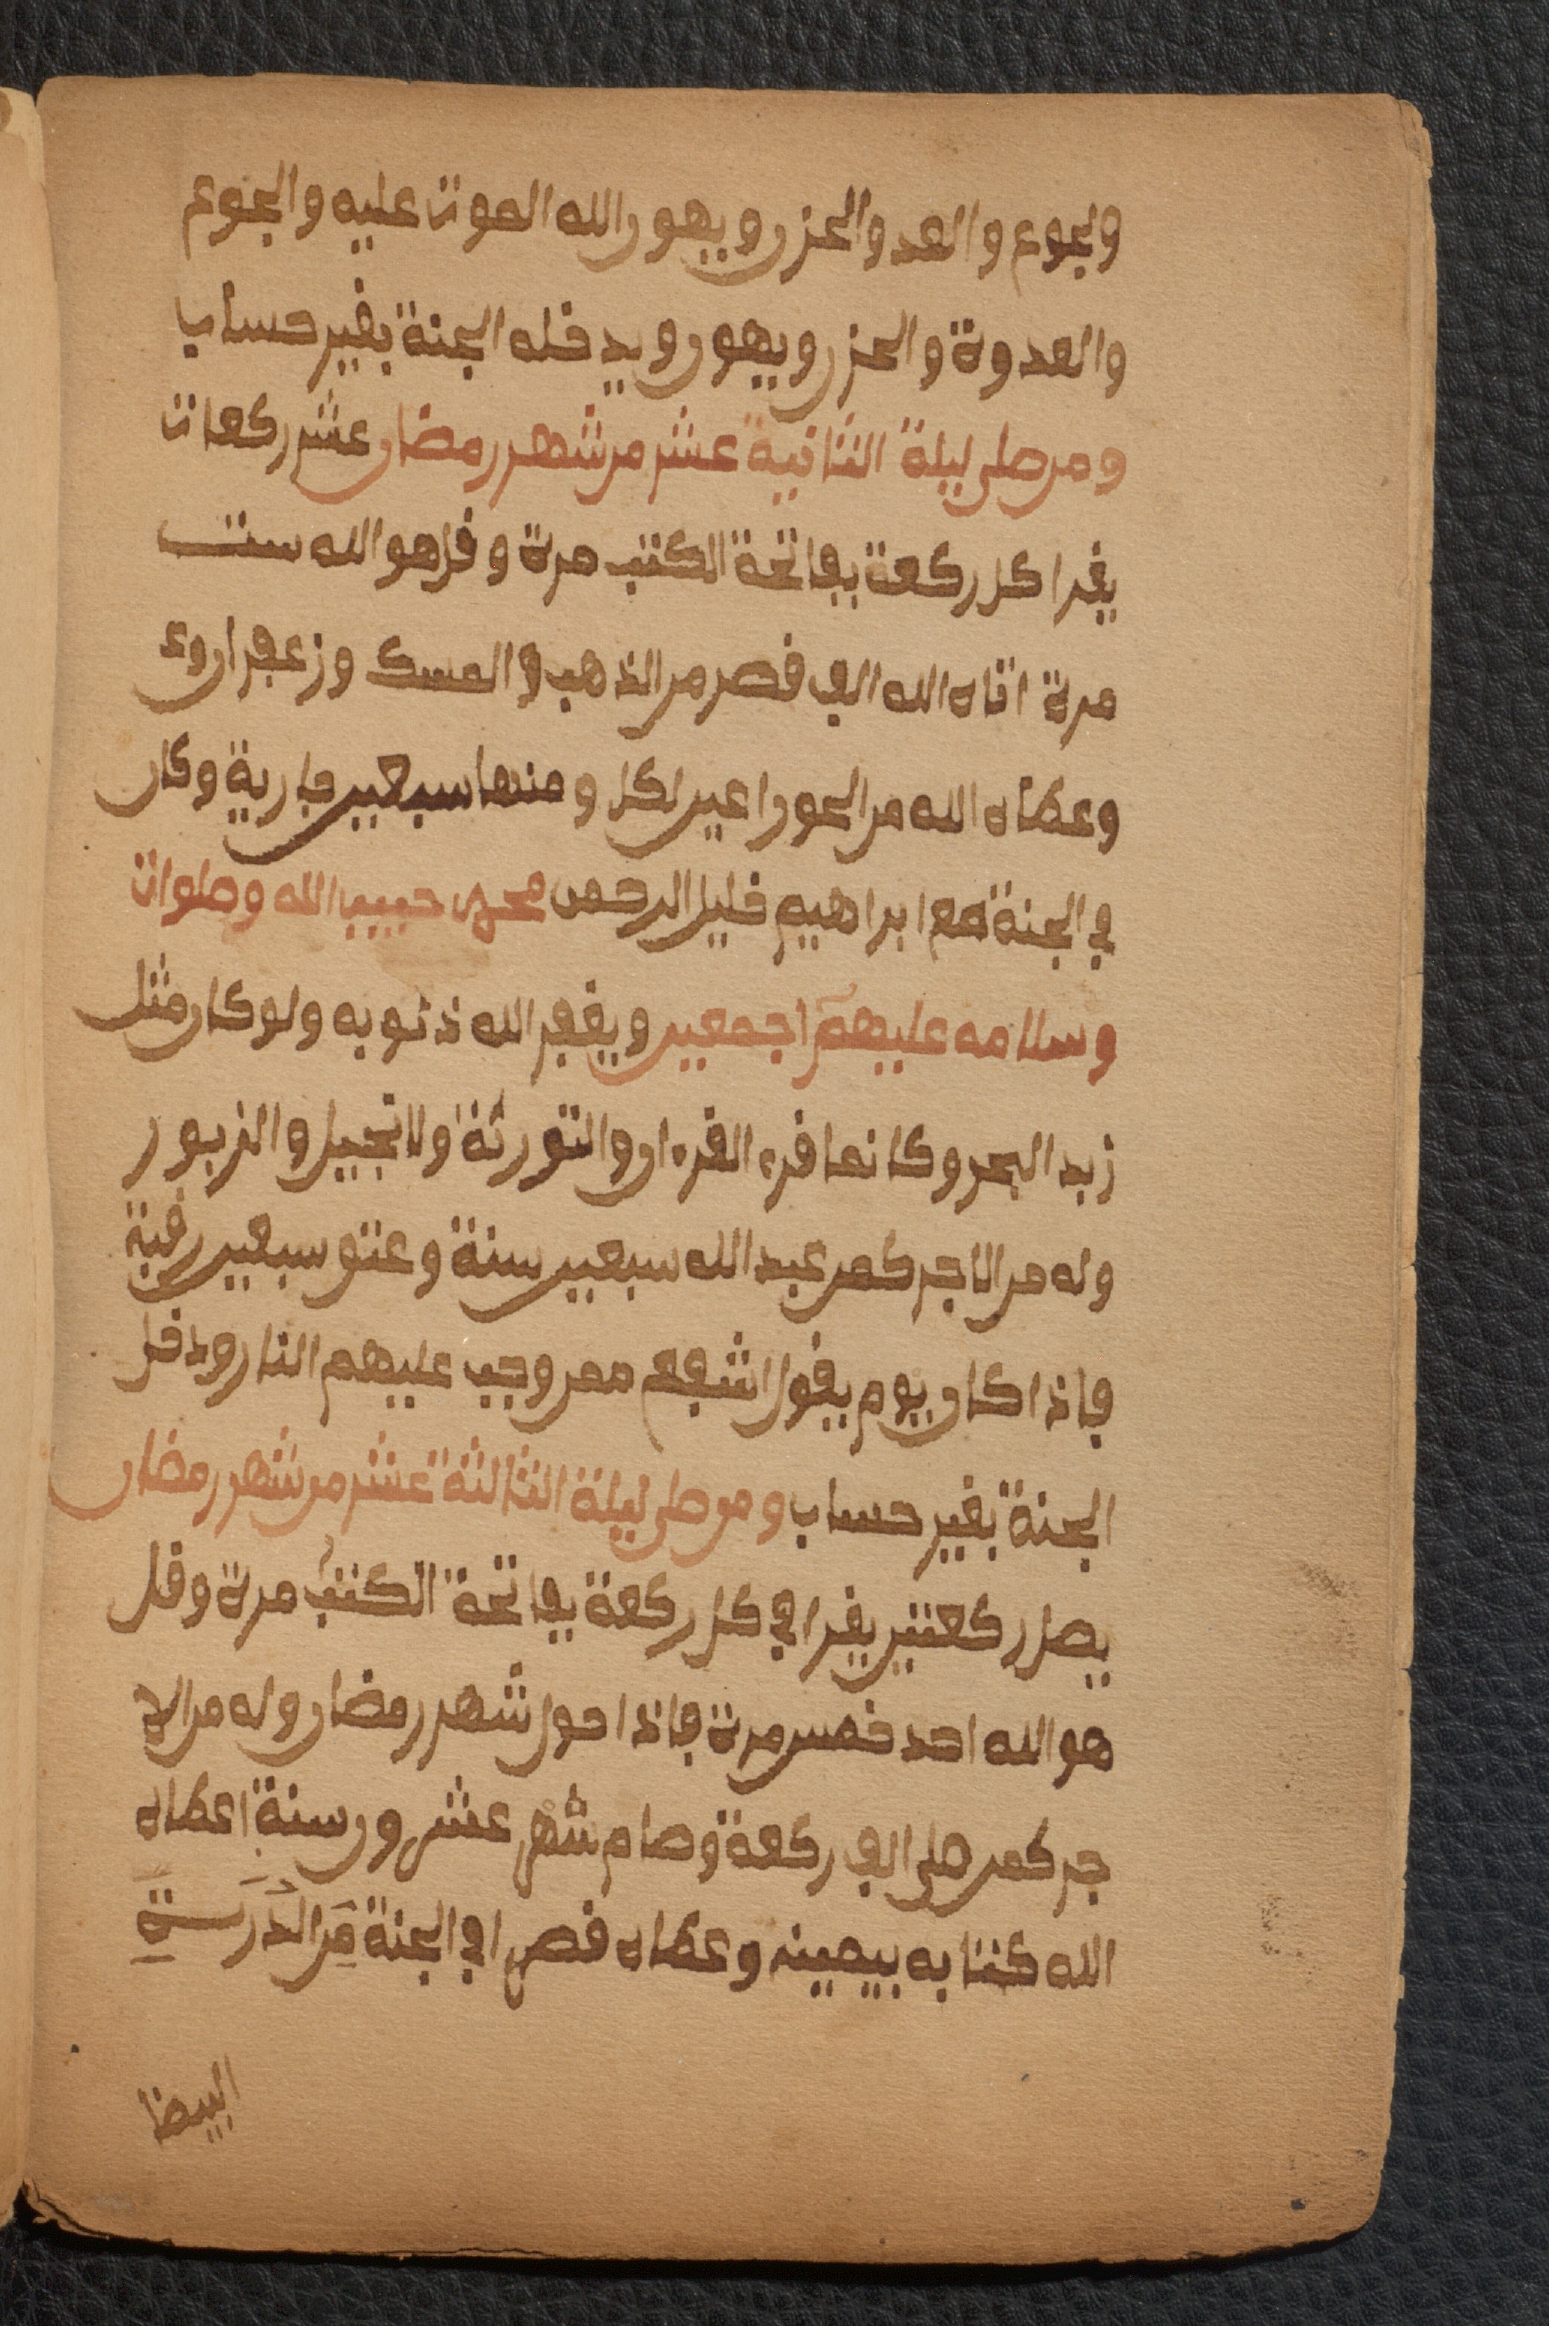 ولجوع والعد والحزن ويهون الله الموت عليه والجوع
والعدوة والحزن ويهون ويدخله الجنة بغير حساب
ومن صلى ليلة الثانية عشر من شهر رمضان عشر ركعات
يقرا كل ركعة بفاتحة الكتب مرة وقل هو الله ستت
مرة اتاه الله الف قصر من الذهب والمسك وزعفران وء
وعطاه الله من الحور اعين لكل ومنها سبعين جارية وكان
في الجنة مع ابراهيم خليل الرحمن محمد حبيب الله وصلوات
وسلامه عليهم اجمعين ويغفر الله ذنوبه ولو كان مثل
زبد البحر وكانما قرء القرءان والتورية ولانجيل والزبور
وله من الاجر كمن عبد الله سبعين سنة وعتق سبعين رقبة
فاذا كان يوم يقول اشفع ممن وجب عليهم النار ودخل
الجنة بغير حساب ومن صلى ليلة الثالثة عشر من شهر رمضان
يصل ركعتين يقرا في كل ركعة بفاتحة الكتب مرة وقل
هو الله احد خمس مرة فاذا حول شهر رمضان وله من الا
جر كمن صلى الف ركعة وصام شهر عشرون سنة اعطاه
الله كتابه بيمينه وعطاه قصرا في الجنة من الدرسة
البيضا